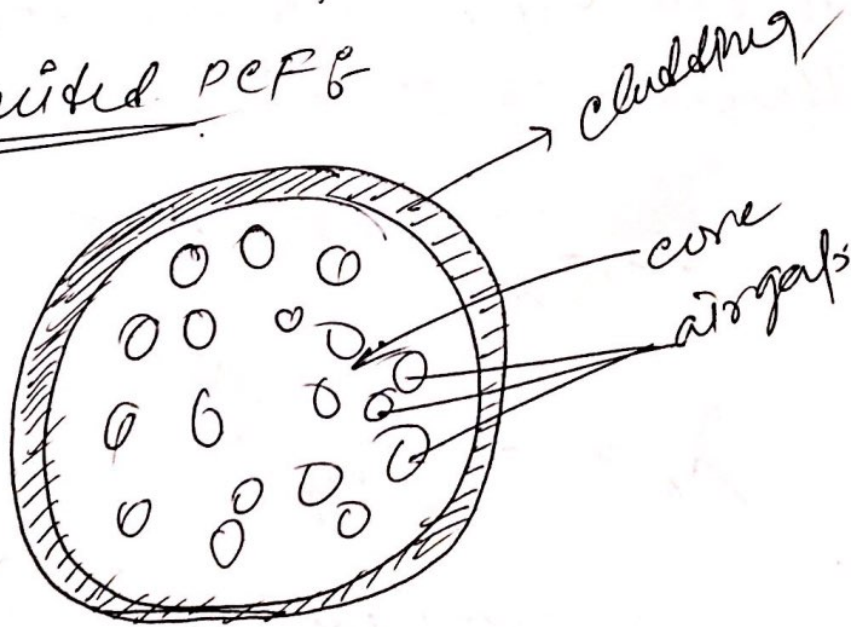 PCFG
cladding
core
airgaps